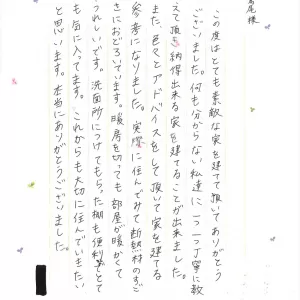 高尾様
この度はとても素敵な家を建てて頂いてありがとう
ございました。何も分からない私達に一つ一つ丁寧に教
えて頂き納得出来る家を建てることが出来ました。
また、色々とアドバイスをして頂いて家を建てる
参考になりました。実際に住んでみて断熱材のすご
さにおどろいています。暖房を切っても部屋が暖かくて
うれしいです。洗面所につけてもらった棚も便利でとて
も気に入ってます。これからも大切に住んでいきたい
と思います。本当にありがとうございました。